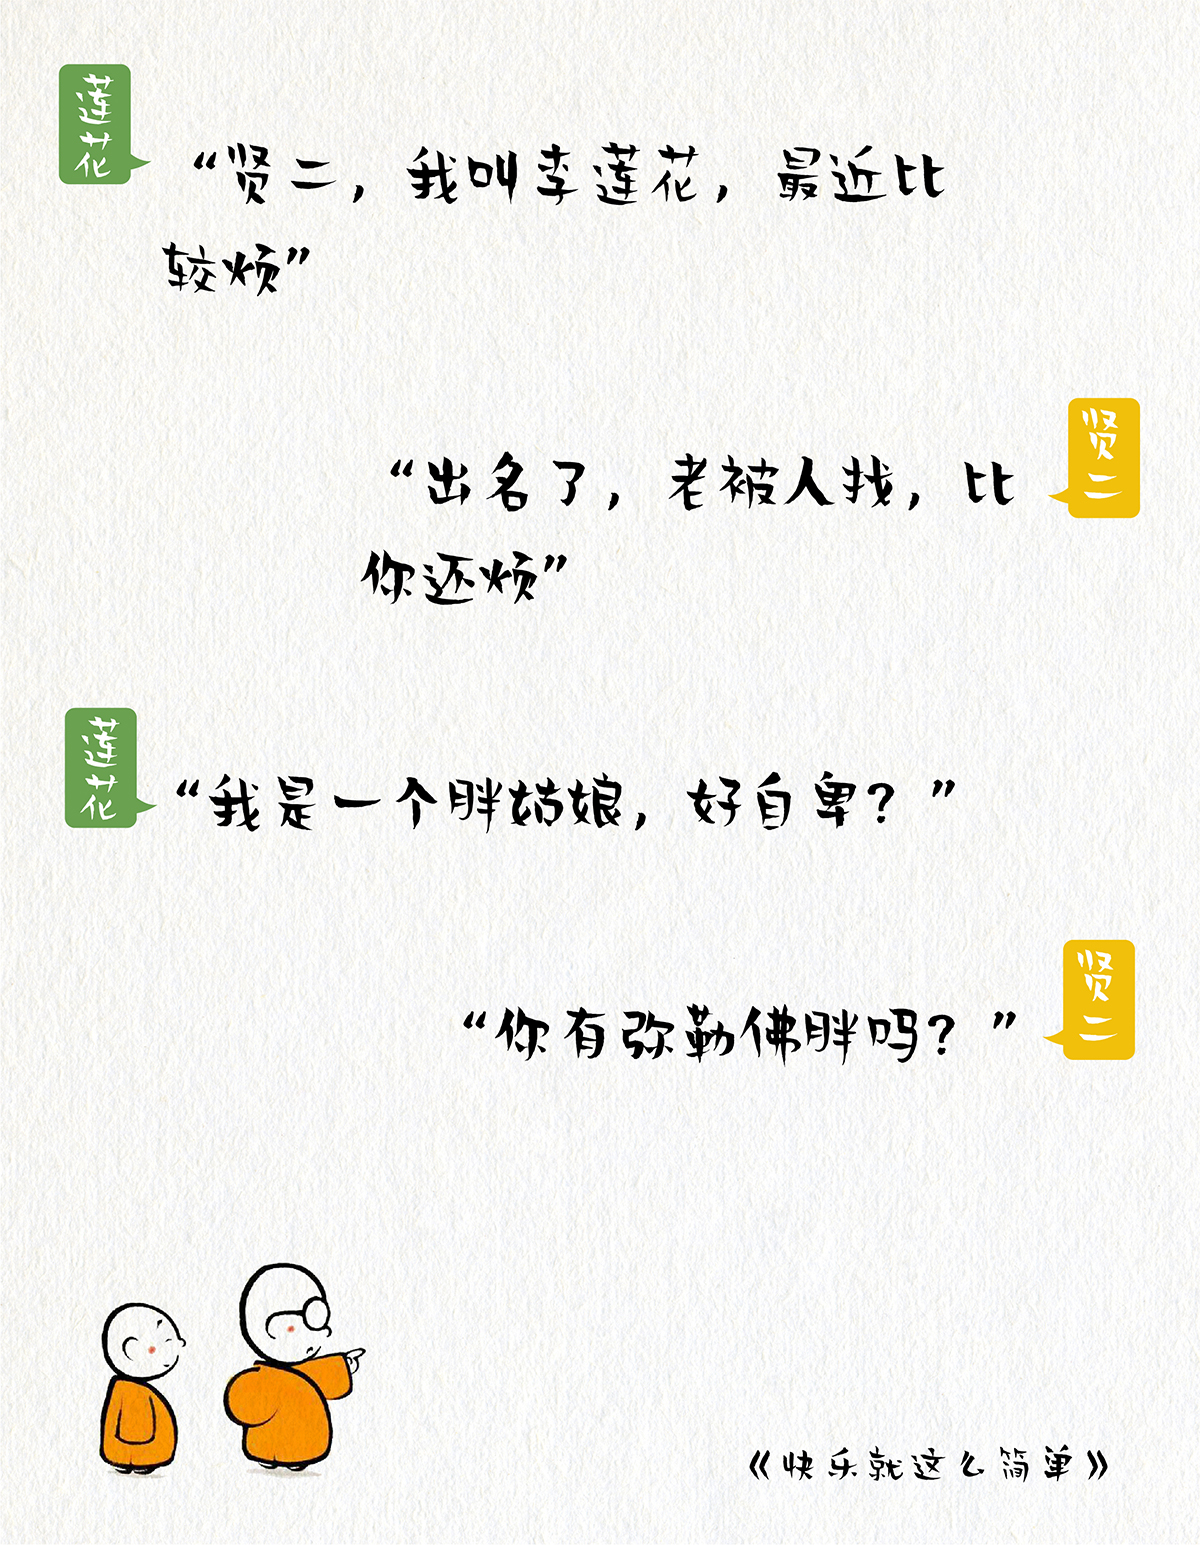 莲花
“贤二，我叫李莲花，最近比
较烦”
贤二
“出名了，老被人找，比
你还烦”
莲花
“我是一个胖姑娘，好自卑？”
贤二
“你有弥勒佛胖吗？”
《快乐就这么简单》